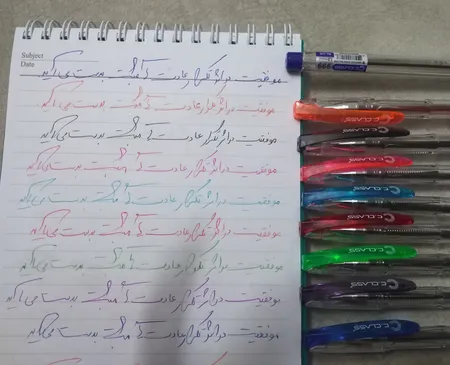 Subject
Date
موفقیت در اثر تکرار عادت های مثبت بدست می آید
موفقیت در اثر تکرار عادت های مثبت بدست می آید
موفقیت در اثر تکرار عادت های مثبت بدست می آید
موفقیت در اثر تکرار عادت های مثبت بدست می آید
موفقیت در اثر تکرار عادت های مثبت بدست می آید
موفقیت در اثر تکرار عادت های مثبت بدست می آید
موفقیت در اثر تکرار عادت های مثبت بدست می آید
موفقیت در اثر تکرار عادت های مثبت بدست می آید
موفقیت در اثر تکرار عادت های مثبت بدست می آید
C.CLASS
C.CLASS
C.CLASS
C.CLASS
C.CLASS
C.CLASS
C.CLASS
C.CLASS
C.CLASS